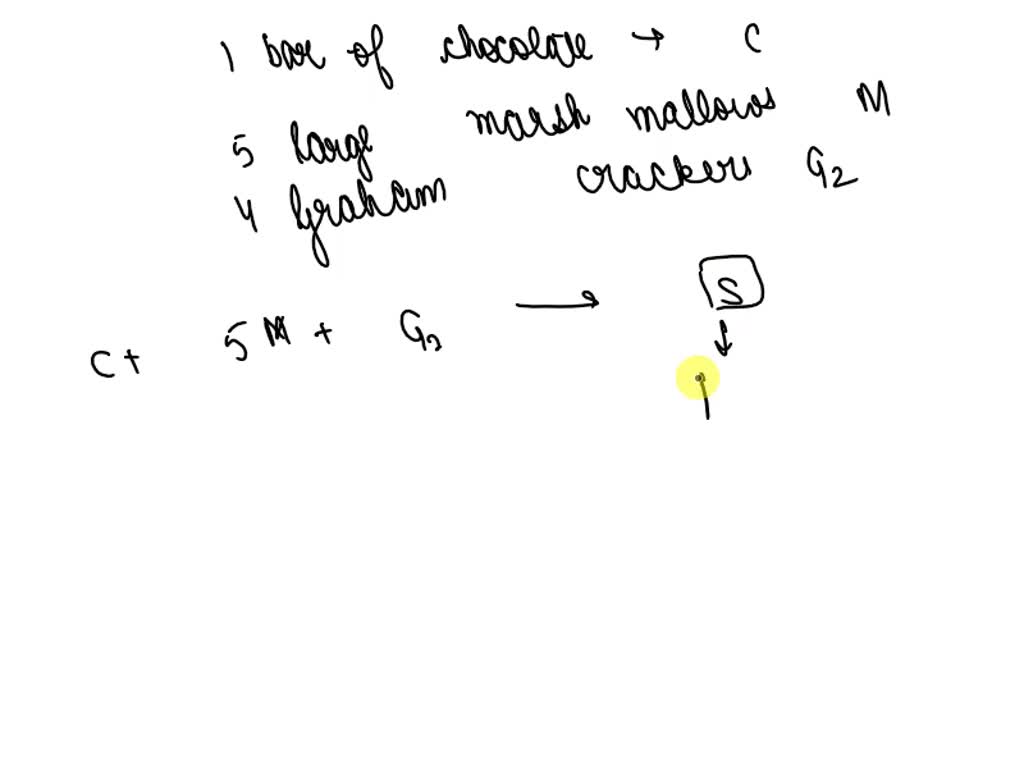 1 bar of chocolate → C
5 large marsh mallows M
4 Graham crackers G2
C + 5 M + G2 → S
↓